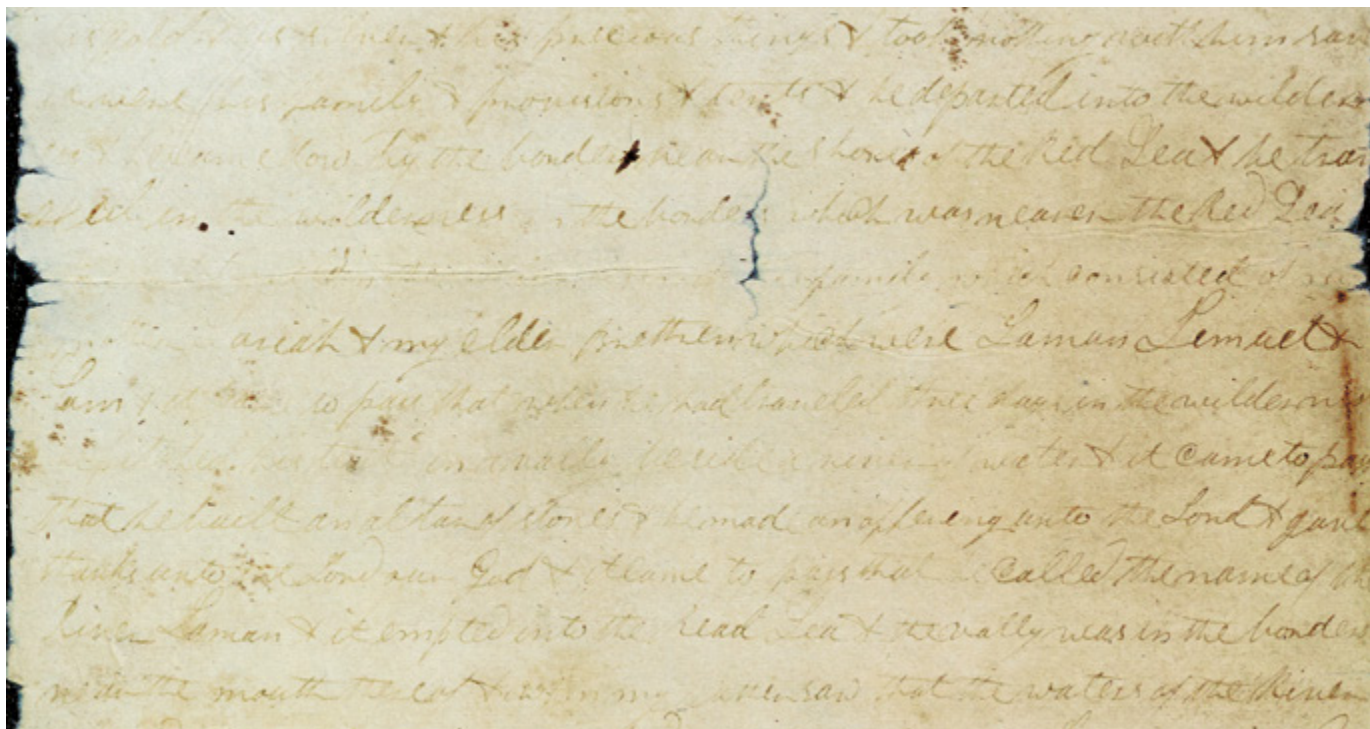 gold & his silver & his precious things & took nothing with him save
it were his family & provisions & tents & he departed into the wilder
& he came down by the borders near the shores of the Red Sea & he trav
in the wilderness in the borders which was nearer the Red Sea
family which consisted of
ariah & my elder brethren which were Laman Lemuel &
Sam & it came to pass that when he had traveled three days in the wilderness
pitched his tent in a vally beside a river of water & it came to pass
that he built an altar of stones & he made an offering unto the Lord & gave
thanks unto the Lord our God & it came to pass that he called the name of the
River Laman & it emptied into the read Sea & the vally was in the borders
near the mouth thereof & when my father saw that the waters of the River